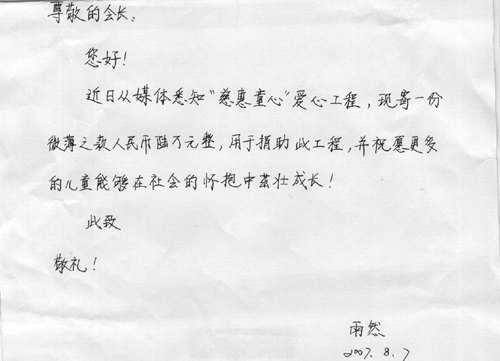 尊敬的会长:
您好!
近日从媒体悉知“慈惠童心”爱心工程,现寄一份
微薄之款人民币陆万元整,用于捐助此工程,并祝愿更多
的儿童能够在社会的怀抱中茁壮成长!
此致
敬礼!
雨然
2007.8.7